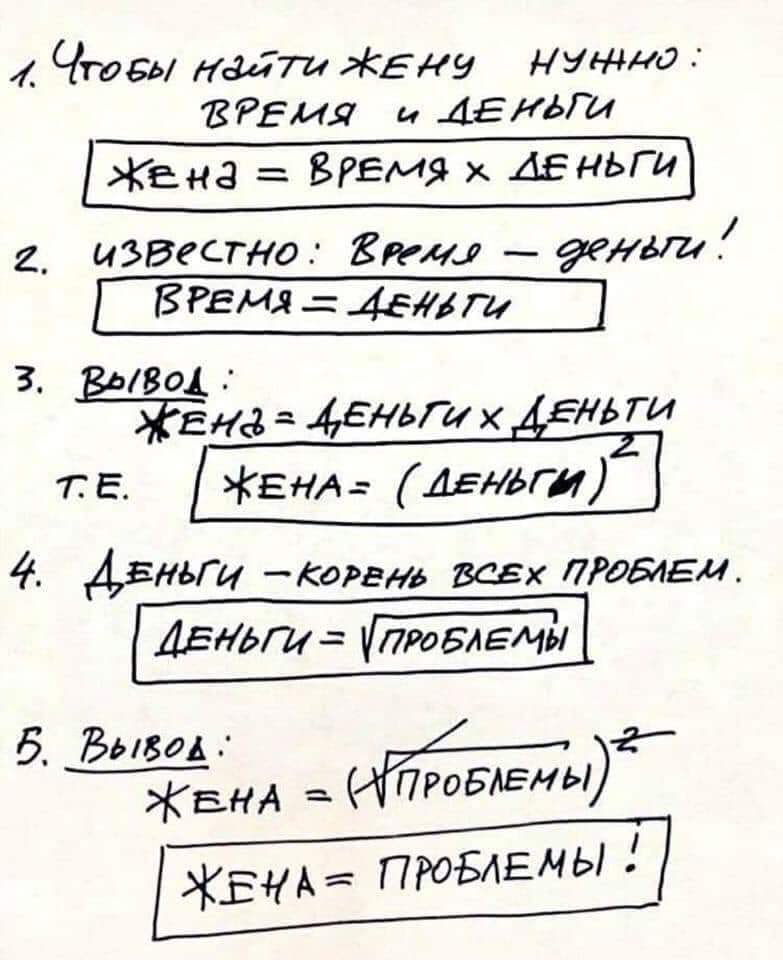 1. Чтобы найти жену нужно:
ВРЕМЯ и ДЕНЬГИ
Жена = ВРЕМЯ x ДЕНЬГИ
2. известно: Время – деньги!
ВРЕМЯ = ДЕНЬГИ
3. Вывод:
ЖЕНА = ДЕНЬГИ x ДЕНЬГИ
Т.Е. ЖЕНА = (ДЕНЬГИ)²
4. ДЕНЬГИ – КОРЕНЬ ВСЕХ ПРОБЛЕМ.
ДЕНЬГИ = √ПРОБЛЕМЫ
5. Вывод:
ЖЕНА = (√ПРОБЛЕМЫ)²
ЖЕНА = ПРОБЛЕМЫ!